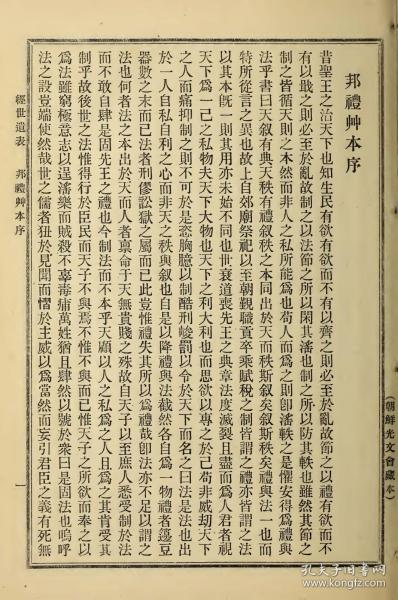 邦禮艸本序
昔聖王之治天下也知生民有欲有欲而不有以齊之則必至於亂故節之以禮有欲而不
有以戢之則必至於亂故制之以法節之所以閑其濤也制之所以防其軼也雖然其節之
制之皆循天則之本然而非人之私所能爲也苟人而爲之則卽濤軼之是懼安得爲禮與
法乎書曰天叙有典天秩有禮叙秩之本同出於天而秩斯叙矣叙斯秩矣禮與法一也而
特所從言之異也故上自郊廟祭祀以至朝覲職貢卒乘賦稅之制皆謂之禮亦皆謂之法
以其本旣一則其用亦未始不同也世衰道喪先王之典章法度滅裂且盡而爲人君者視
天下爲一己之私物夫天下大物也天下之利大利也而思欲以專之於己苟非威刧天下
之人而痛抑制之則不可於是恣胸臆以制酷刑峻罰以令於天下而名之曰法是法也出
於一人自私自利之心而非天之秩與叙也自是以降禮與法截然各自爲一物禮者籩豆
器數之末而已法者刑僇訟獄之屬而已此豈惟禮失其所以爲禮哉卽法亦不足以謂之
法也何者法之本出於天而人者稟命于天無貴賤之殊故自天子以至庶人悉受制於法
而不敢自肆是固先王之禮也今制法而不本乎天顧以人之私爲之人且爲之其肯受其
制乎故後世之法惟得行於臣民而天子不與焉不惟不與而已惟天子之所欲而奉之以
爲法雖窮極意志以逞濤樂而賊殺不辜毒痡萬姓猶且肆然以號於衆曰是固法也嗚呼
法之設豈端使然哉世之儒者狃於見聞而慴於主威以爲當然而妄引君臣之義有死無
經世遺表　邦禮艸本序
一
（朝鮮光文會藏本）
孔夫子旧书网
www.kongfz.com